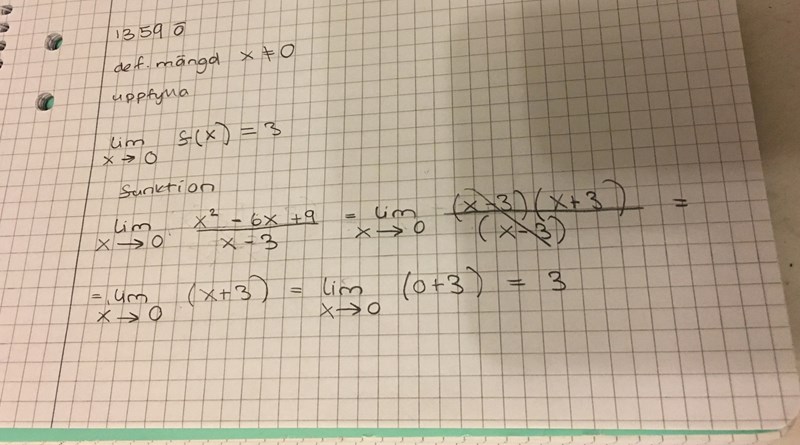 1359 ö
def. mängd x ≠ 0
uppfylla
lim x→0 f(x) = 3
funktion
lim x→0 (x² - 6x + 9)/(x - 3) = lim x→0 (x-3)(x+3)/(x-3) =
= lim x→0 (x+3) = lim x→0 (0+3) = 3